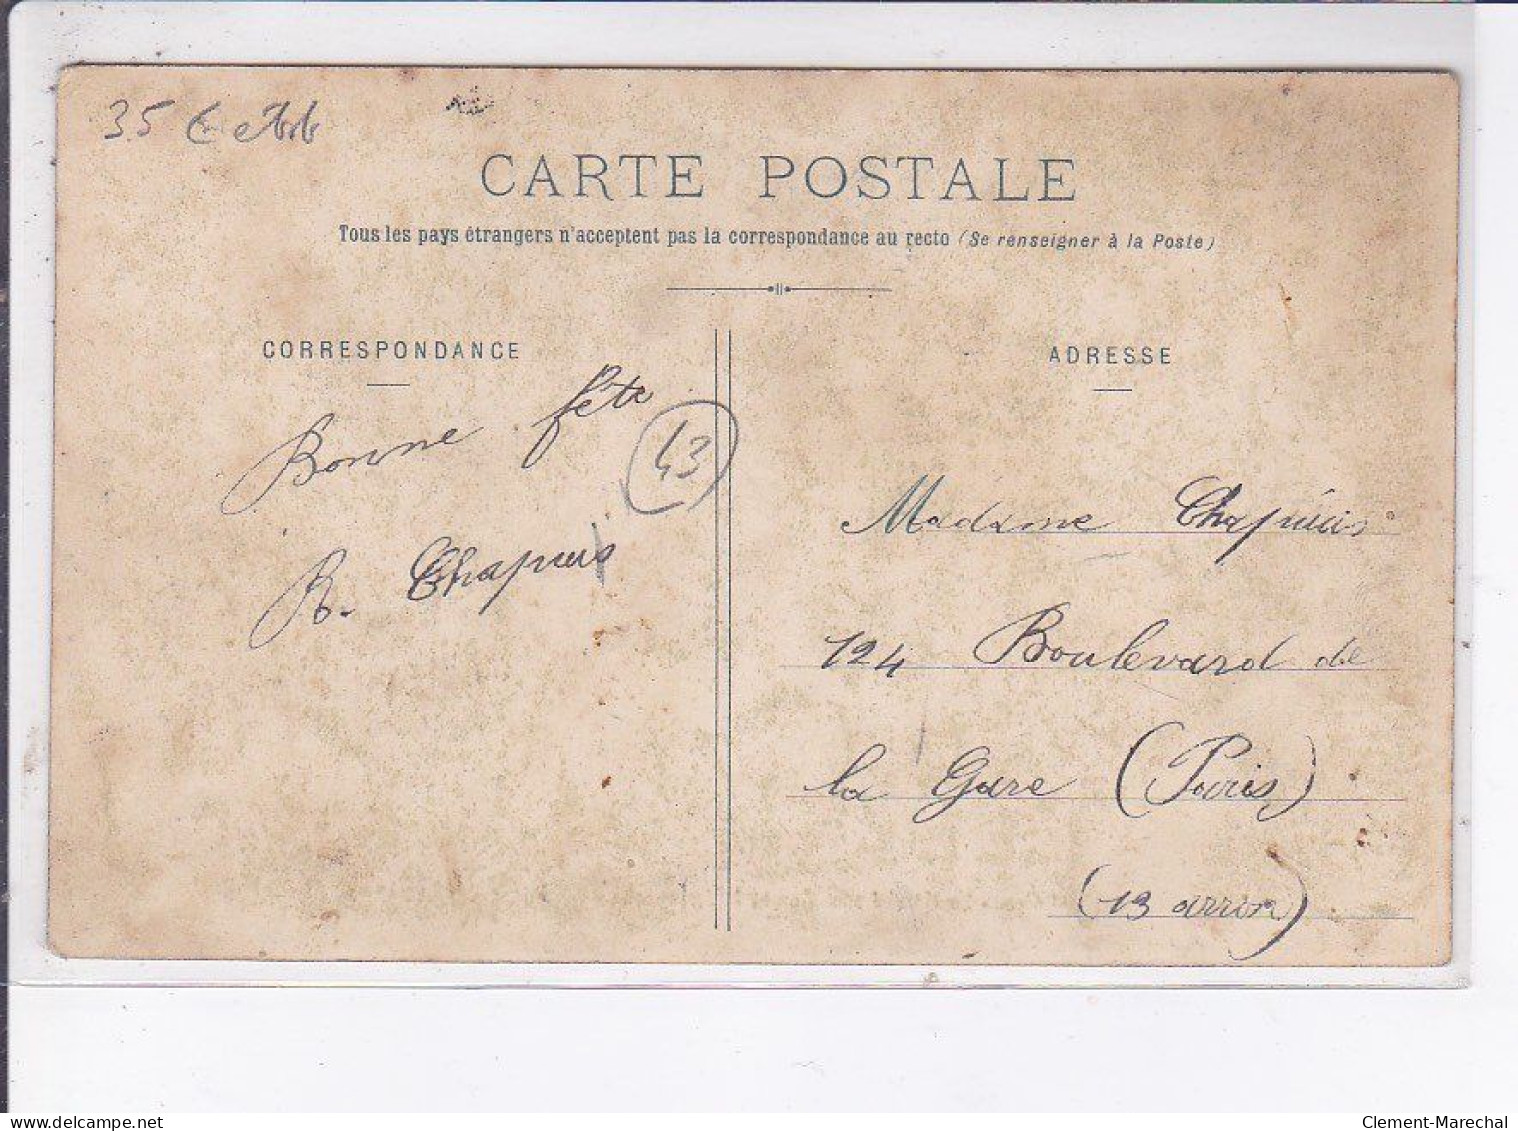 35 €
CARTE POSTALE
Tous les pays étrangers n'acceptent pas la correspondance au recto (Se renseigner à la Poste)
CORRESPONDANCE
ADRESSE
Bonne fête
43
R. Chapuis
Madame Chapuis
124 Boulevard de
la Gare (Paris)
(13 arron)
delcampe.net
Clement-Marechal